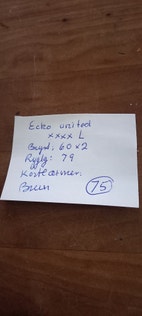 Ecko united
xxxx L
Bryst: 60 x 2
Rygg: 79
Kortermer.
Brun
75